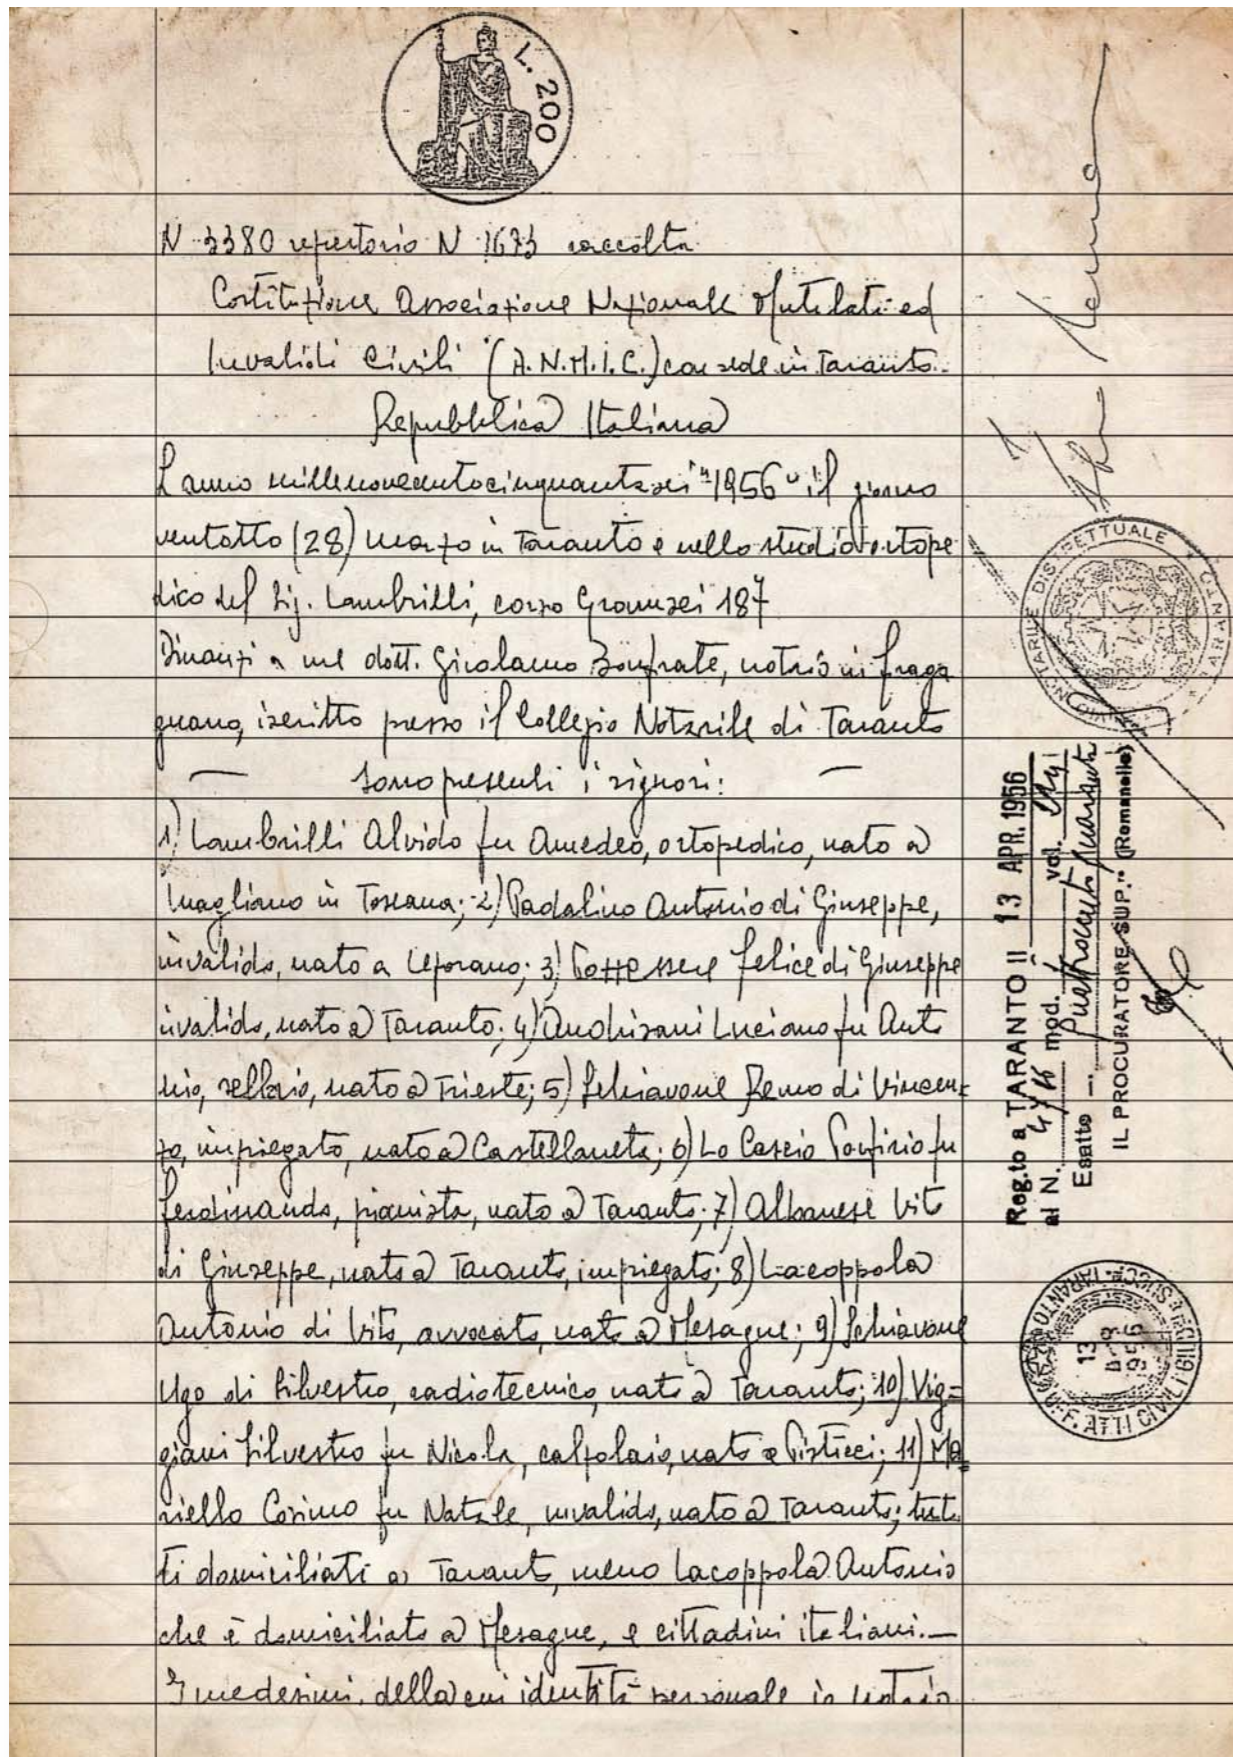 L. 200
N 3380 repertorio N 1673 raccolta
Costituzione Associazione Nazionale Mutilati ed
Invalidi Civili (A.N.M.I.C.) con sede in Taranto.
Repubblica Italiana
L'anno millenovecentocinquantasei "1956" il giorno
ventotto (28) marzo in Taranto e nello studio ortope
dico del Sig. Lambrilli, corso Gramsci 187
Dinanzi a me dott. Girolamo Bonfrate, notaio in Fraga
gnano, iscritto presso il Collegio Notarile di Taranto
— sono presenti i signori: —
1) Lambrilli Alvido fu Amedeo, ortopedico, nato a
Magliano in Toscana; 2) Padalino Antonio di Giuseppe,
invalido, nato a Leporano; 3) Felice di Giuseppe
invalido, nato a Taranto; 4) Luciano fu Anto
nio, sellaio, nato a Trieste; 5) Schiavone Remo di Vincen-
zo, impiegato, nato a Castellaneta; 6) Lo Cascio Porfirio fu
Ferdinando, pianista, nato a Taranto; 7) Albanese Vito
di Giuseppe, nato a Taranto, impiegato; 8) Lacoppola
Antonio di Vito, avvocato, nato a Mesagne; 9) Schiavone
Ugo di Silvestro, radiotecnico, nato a Taranto; 10) Vig=
giani Silvestro fu Nicola, calzolaio, nato a Pisticci; 11) Ma
riello Cosimo fu Natale, invalido, nato a Taranto; tut
ti domiciliati a Taranto, meno Lacoppola Antonio
che è domiciliato a Mesagne, e cittadini italiani.—
I medesimi, della cui identità personale io notaio
DISTRETTUALE * TARANTO *
Reg.to a TARANTO il 13 APR. 1956
al N. mod. vol.
Esatto — quattrocentoquaranta
IL PROCURATORE SUP.re (Romanello)
UFF. ATTI CIVILI GIUD. E SUCC. TARANTO
13
APR
956